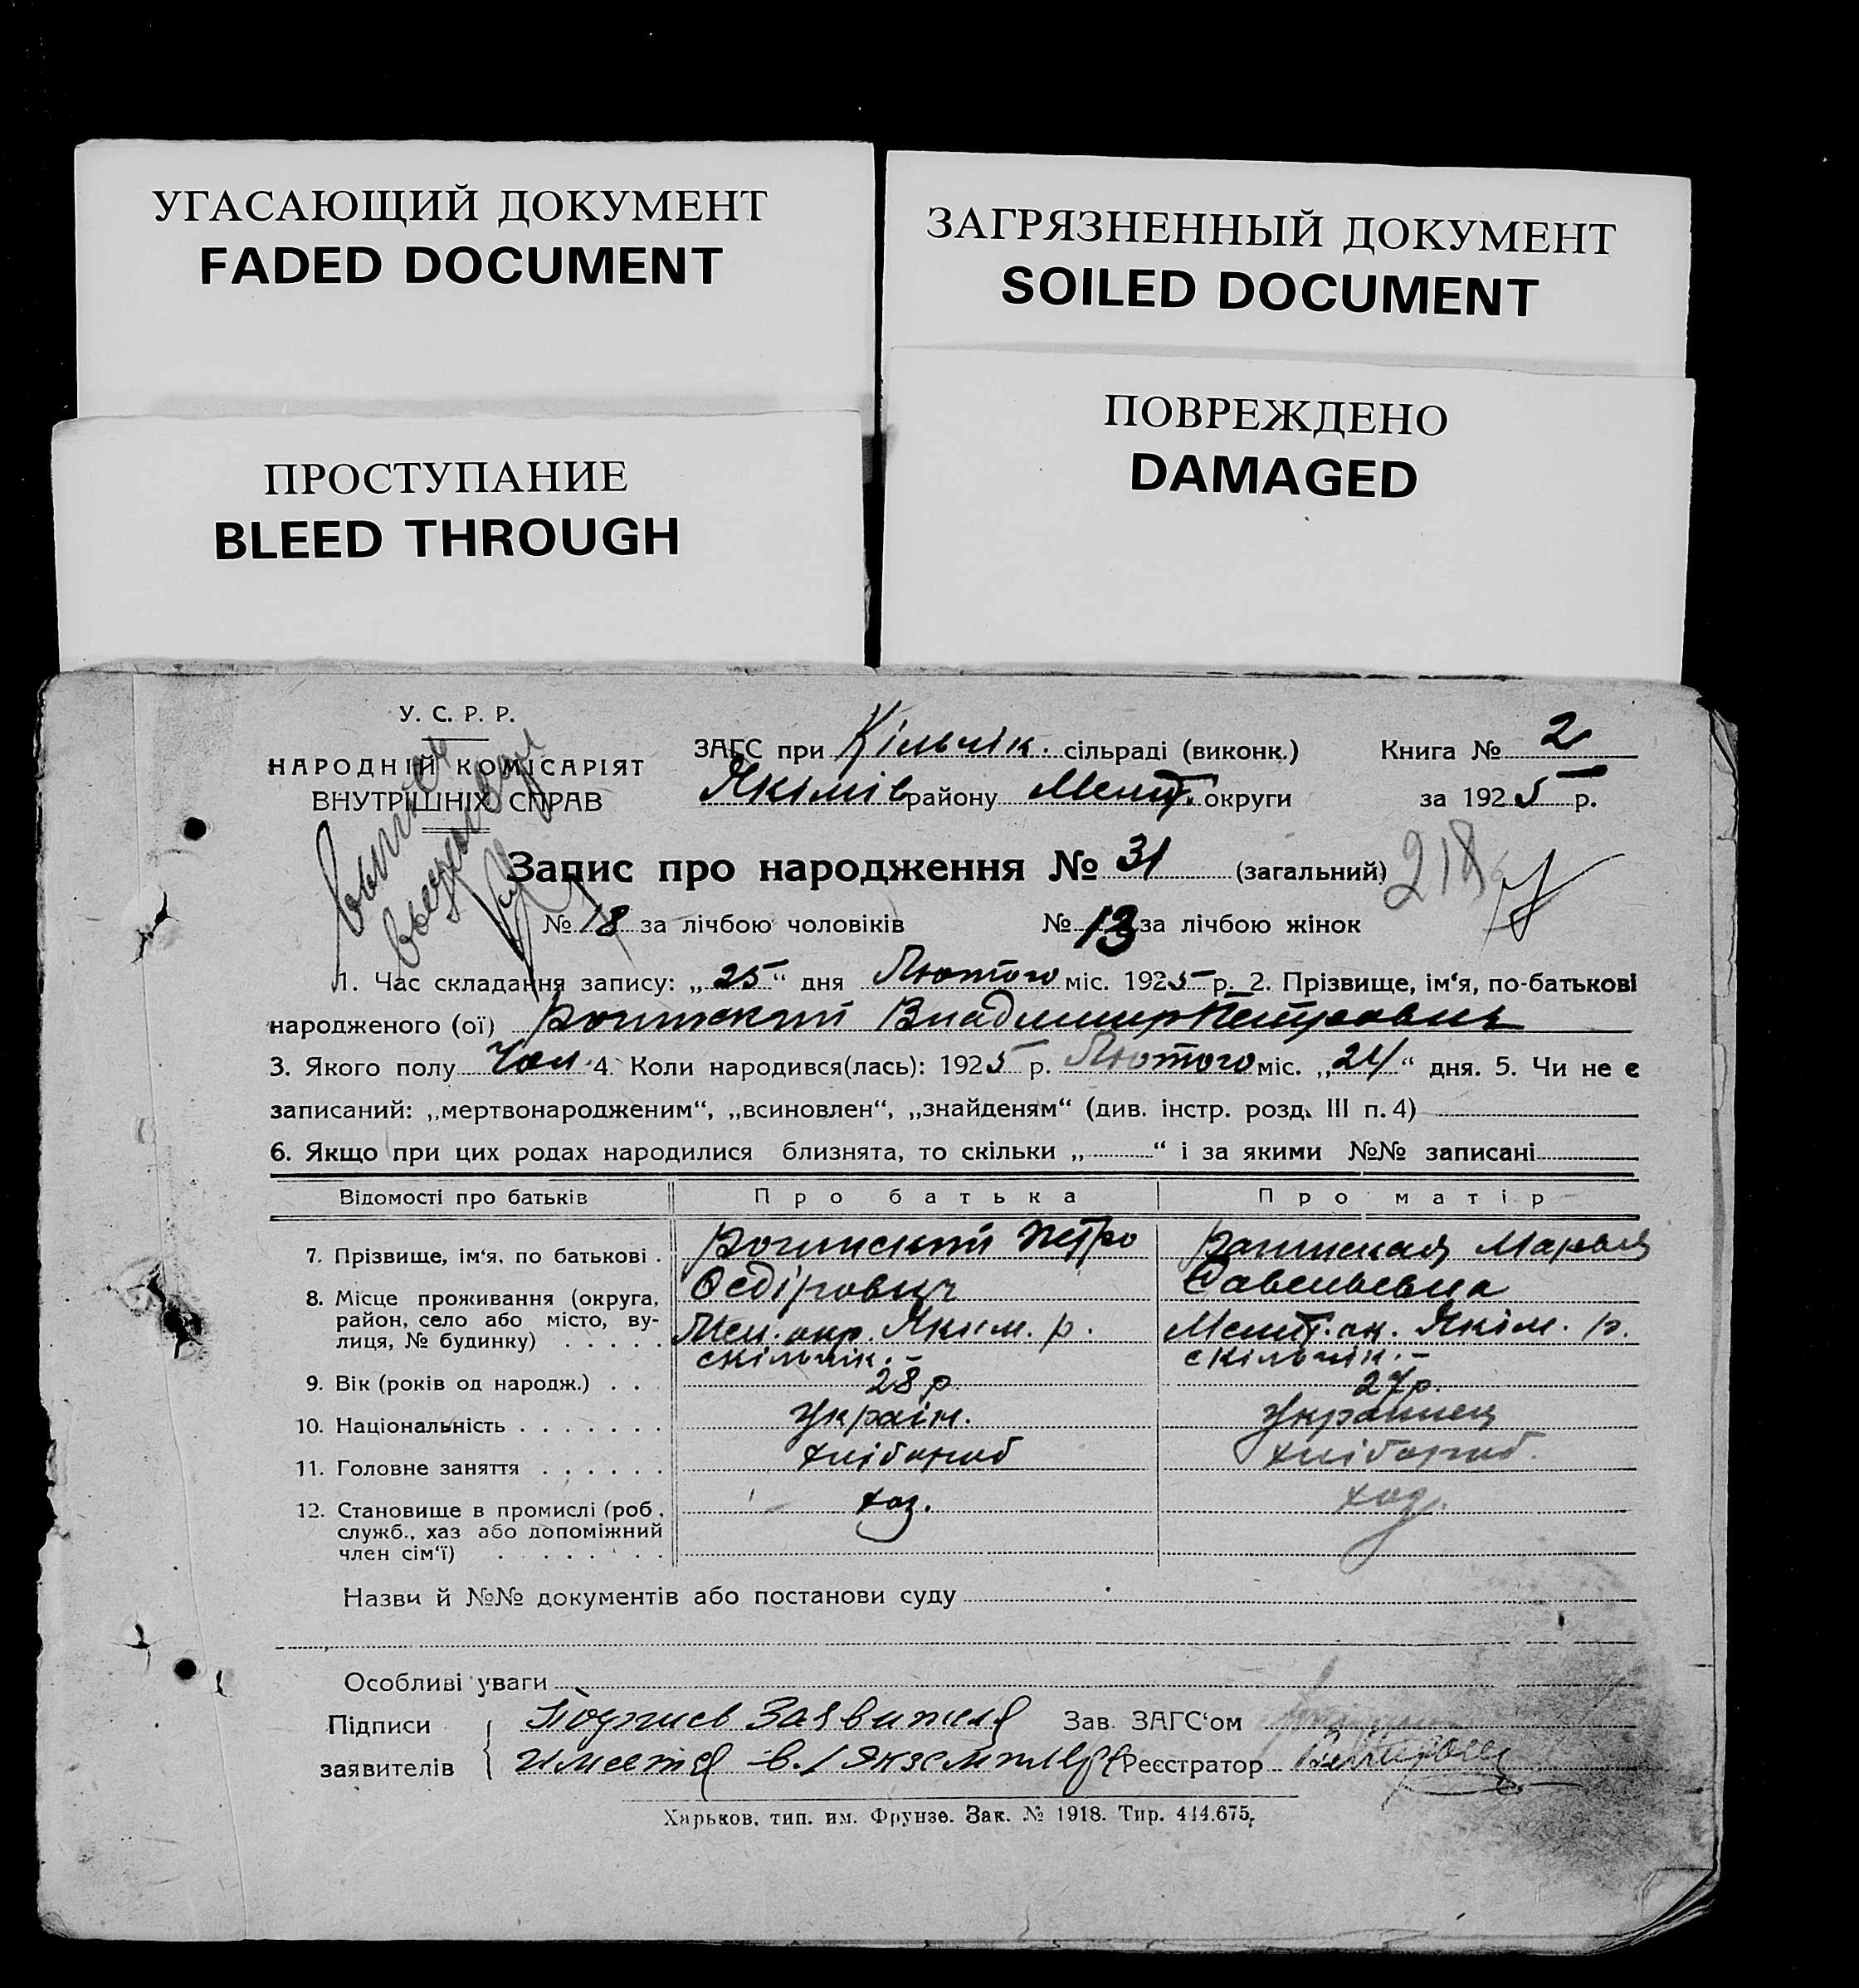 УГАСАЮЩИЙ ДОКУМЕНТ
FADED DOCUMENT
ЗАГРЯЗНЕННЫЙ ДОКУМЕНТ
SOILED DOCUMENT
ПРОСТУПАНИЕ
BLEED THROUGH
ПОВРЕЖДЕНО
DAMAGED
У. С. Р. Р.
НАРОДНІЙ КОМІСАРІЯТ
ВНУТРІШНІХ СПРАВ
ЗАГС при Кільчік. сільраді (виконк.) Книга № 2
Якімів району Меліт. округи за 1925 р.
Запис про народження № 31 (загальний) 218
№ 18 за лічбою чоловіків № 13 за лічбою жінок
1. Час складання запису: „25“ дня Лютого міс. 1925 р. 2. Прізвище, ім‘я, по-батькові
народженого (ої) Владимир Петровичь
3. Якого полу Чол. 4. Коли народився(лась): 1925 р. Лютого міс. „24“ дня. 5. Чи не є
записаний: „мертвонародженим“, „всиновлен“, „знайденям“ (див. інстр. розд. III п. 4)
6. Якщо при цих родах народилися близнята, то скільки „ “ і за якими №№ записані
Відомості про батьків Про батька Про матір
7. Прізвище, ім‘я, по батькові . Петро Марья
Федірович Савельевна
8. Місце проживання (округа,
район, село або місто, ву-
лиця, № будинку) . . . . . Мел. окр. Яким. р. Меліт. ок. Якім. р.
с кільчік. – с кільчік. –
9. Вік (років од народж.) . . . 28 р. 27 р.
10. Національність . . . . . . . Україн. Украинец
11. Головне заняття . . . . . . хлібороб хлібороб.
12. Становище в промислі (роб.,
служб., хаз або допоміжний
член сім‘ї) . . . . . . . хаз. хаз.
Назви й №№ документів або постанови суду
Особливі уваги
Підписи Подпись Заявителя Зав. ЗАГС‘ом
заявителів имеется в 1 экземпляре Реєстратор
Харьков, тип. им. Фрунзе. Зак. № 1918. Тир. 414.675.